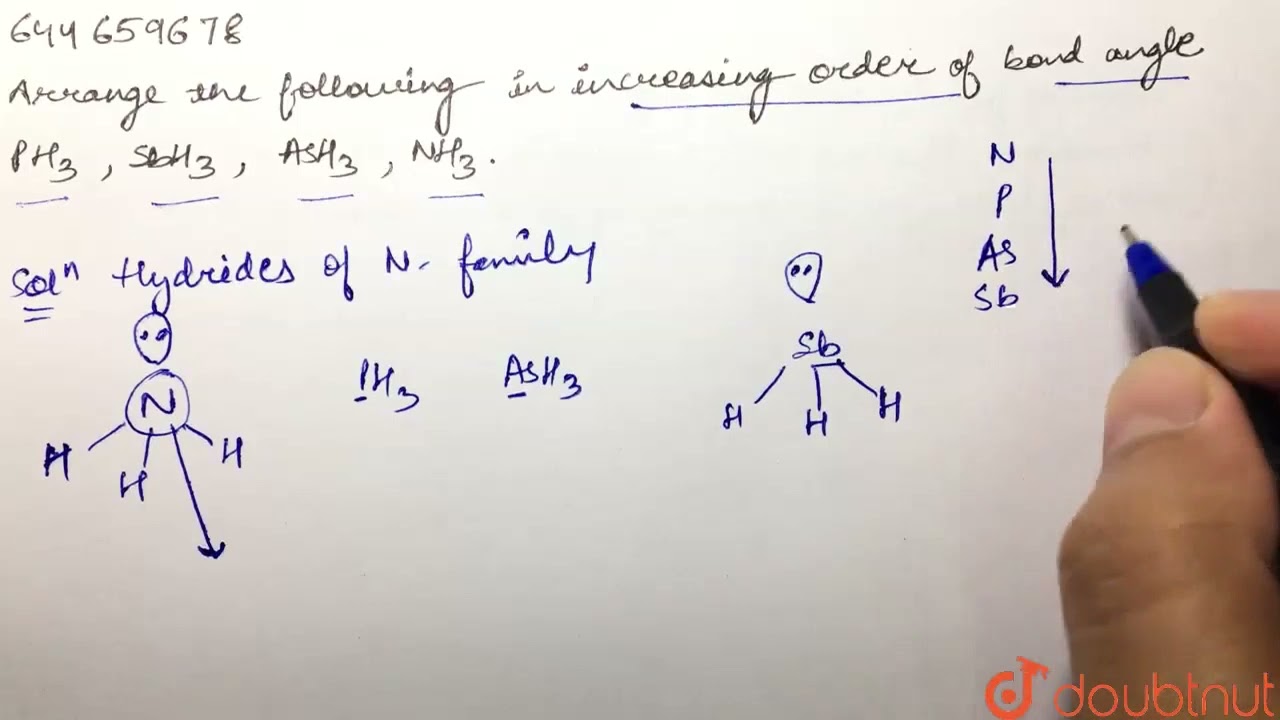 644 659678
Arrange the following in increasing order of bond angle
PH3 , SbH3 , AsH3 , NH3.
Solⁿ Hydrides of N- family
N
P
As
Sb
N
H
H
H
PH3
AsH3
Sb
H
H
H
doubtnut